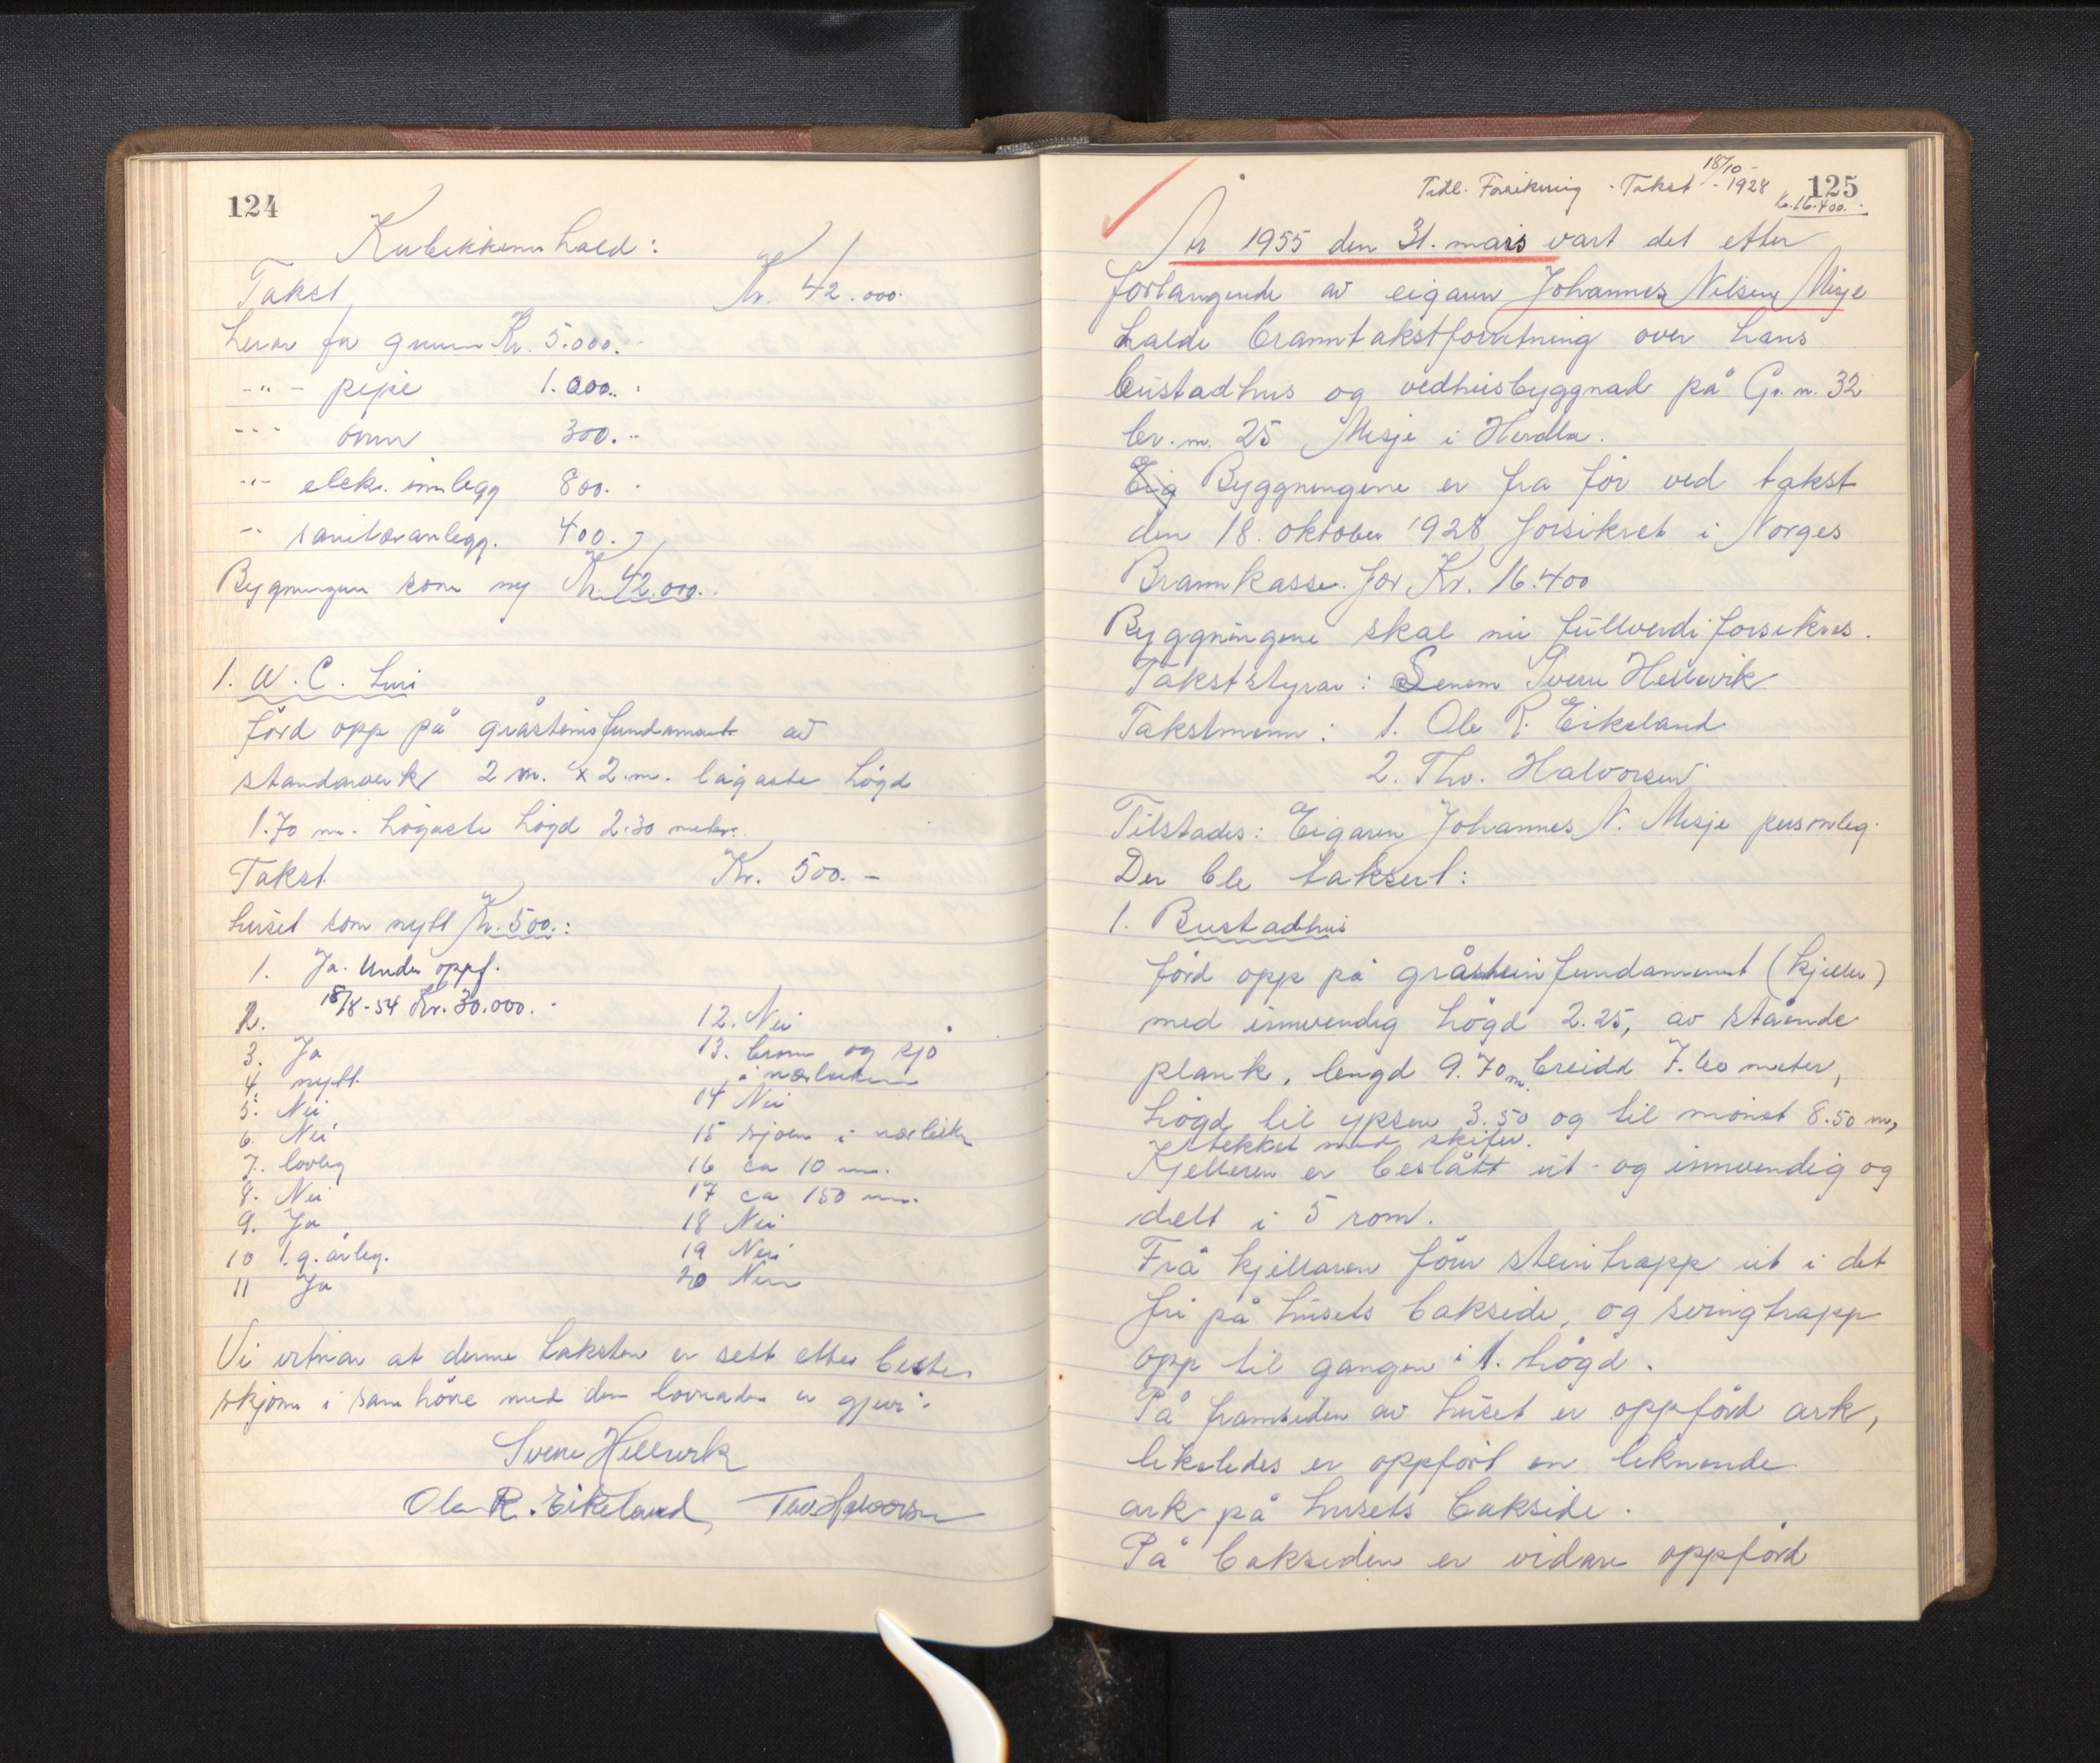 124
Kubikkinnhald:
Takst Kr. 42.000.
herav for grunn Kr. 5.000.-
-"- pipe 1.000.-
-"- omn 300.-
-"- elektr. innlegg 800.-
-"- sanitæranlegg. 400.-
Bygningen som ny Kr. 42.000.-
1. W.C. hus
förd opp på gråsteinsfundament av
standarverk 2 m. x 2 m. lägaste högd
1.70 m. högaste högd 2.30 meter.
Takst Kr. 500.-
huset som nytt Kr. 500.:
1. Ja. Under oppf.
2. 18/8-54 Kr. 30.000.-
3. Ja
4. nytt
5. Nei
6. Nei
7. lovleg
8. Nei
9. Ja
10 1.g. årleg.
11 Ja
12. Nei
13. brönn og sjö
i närleiken
14 Nei
15 sjöen i närleik
16 ca 10 m.
17 ca 150 m.
18 Nei
19 Nei
20 Nein
Vi vitnar at denne taksten er sett etter beste
skjönn i samhöve med den lovnaden er gjevi.
Sverre Hellevik
Ole R. Eikeland, Thv. Halvorsen
Tidl. Forsikring - Takst 18/10 - 1928
Kr. 16.400.-
125
År 1955 den 31. mars vart det etter
forlangende av eigaren Johannes Nilsen Misje
halde branntakstforretning over hans
bustadhus og vedhusbyggnad på Gr. n. 32
br. n. 25 Misje i Herdla.
Eig Byggningene er fra för ved takst
den 18. oktober 1928 forsikret i Norges
Brannkasse for Kr. 16.400
Byggningene skal nu fullverdiforsikres.
Takststyrar: Lensm Sverre Hellevik
Takstmenn: 1. Ole R. Eikeland
2. Thv. Halvorsen
Tilstades: Eigaren Johannes N. Misje personleg.
Der ble taksert:
1. Bustadhus
förd opp på gråsteinfundament (kjeller)
med innvendig högd 2.25, av stående
plank, lengd 9.70 m. breidd 7.60 meter,
högd til ypsen 3.50 og til mönet 8.50 m,
tekket med skifer.
Kjelleren er beslått ut- og innvendig og
delt i 5 rom.
Frå kjellaren förer steintrapp ut i det
fri på husets bakside, og svingtrapp
opp til gangen i 1. högd.
På framsiden av huset er oppförd ark,
likeledes er oppfört en liknende
ark på husets bakside.
På baksiden er vidare oppförd